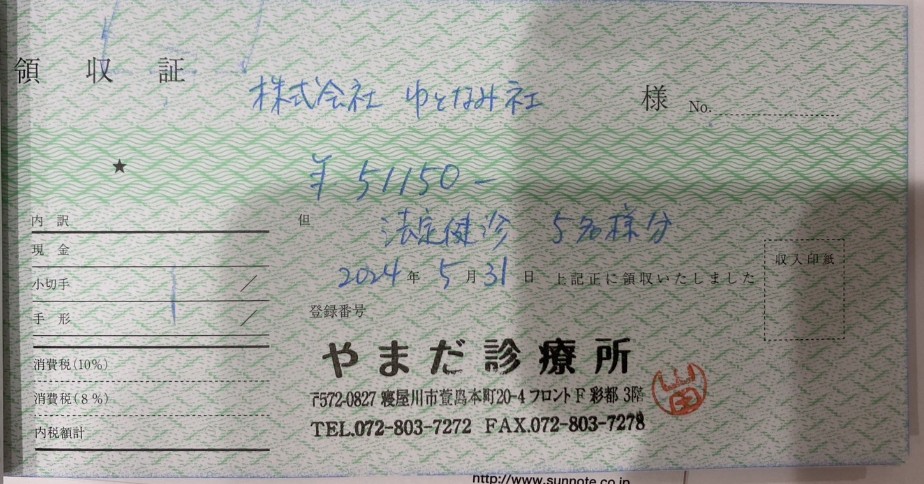 領収証
株式会社 ゆとなみ社 様 No.
★ ¥51150-
但 法定健診 5名様分
2024年5月31日 上記正に領収いたしました
収入印紙
内訳
現金
小切手 /
手形 /
消費税(10%)
消費税(8%)
内税額計
登録番号
やまだ診療所
〒572-0827 寝屋川市萱島本町20-4 フロントF彩都 3階
TEL.072-803-7272 FAX.072-803-7278
山田
http://www.sunnote.co.jp